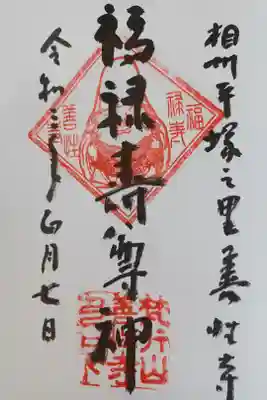 相州平塚之里善性寺
福禄寿尊神
令和三年正月七日
福禄寿
善性寺
梵行山
善性寺